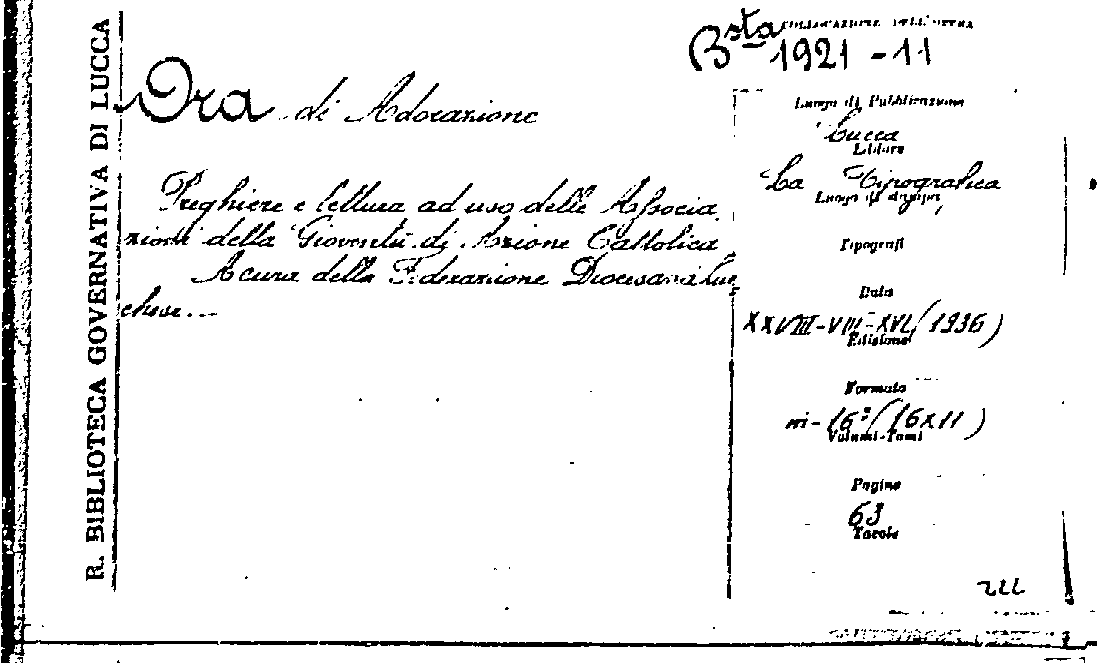 R. BIBLIOTECA GOVERNATIVA DI LUCCA
Ora di Adorazione
Preghiere e lettura ad uso delle Associa
zioni della Gioventù di Azione Cattolica
A cura della Federazione Diocesana Luc
chese...
COLLOCAZIONE DELL'OPERA
Bsta 1921-11
Luogo di Pubblicazione
Lucca
Editore
La Tipografica
Luogo di stampa
Tipografi
Data
XXVIII-VIII-XVI (1936)
Edizione
Formato
in-16° (16x11)
Volumi-Tomi
Pagine
63
Tavole